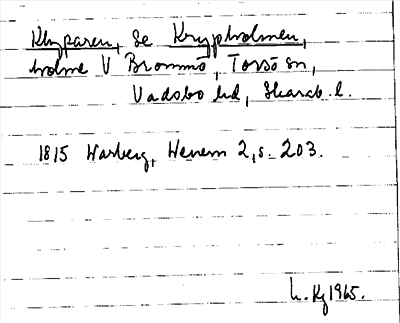 Klyparen, se Krypholmen,
holme V Brommö, Torsö sn,
Vadsbo hd, Skarab. l.
1815 Warberg, Wenern 2, s. 203.
1965.